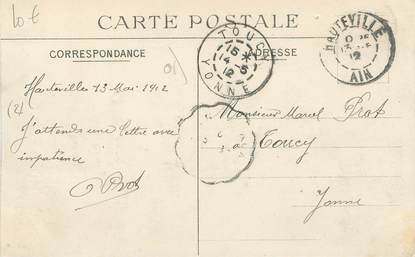 10 €
CARTE POSTALE
CORRESPONDANCE
ADRESSE
TOUCY
15 *
14 - 5
12
YONNE
HAUTEVILLE
12
AIN
01
Hauteville 13 Mai 1912
(2)
J'attends une lettre avec
impatience
Prot
Monsieur Marcel Prot
à
Toucy
Yonne